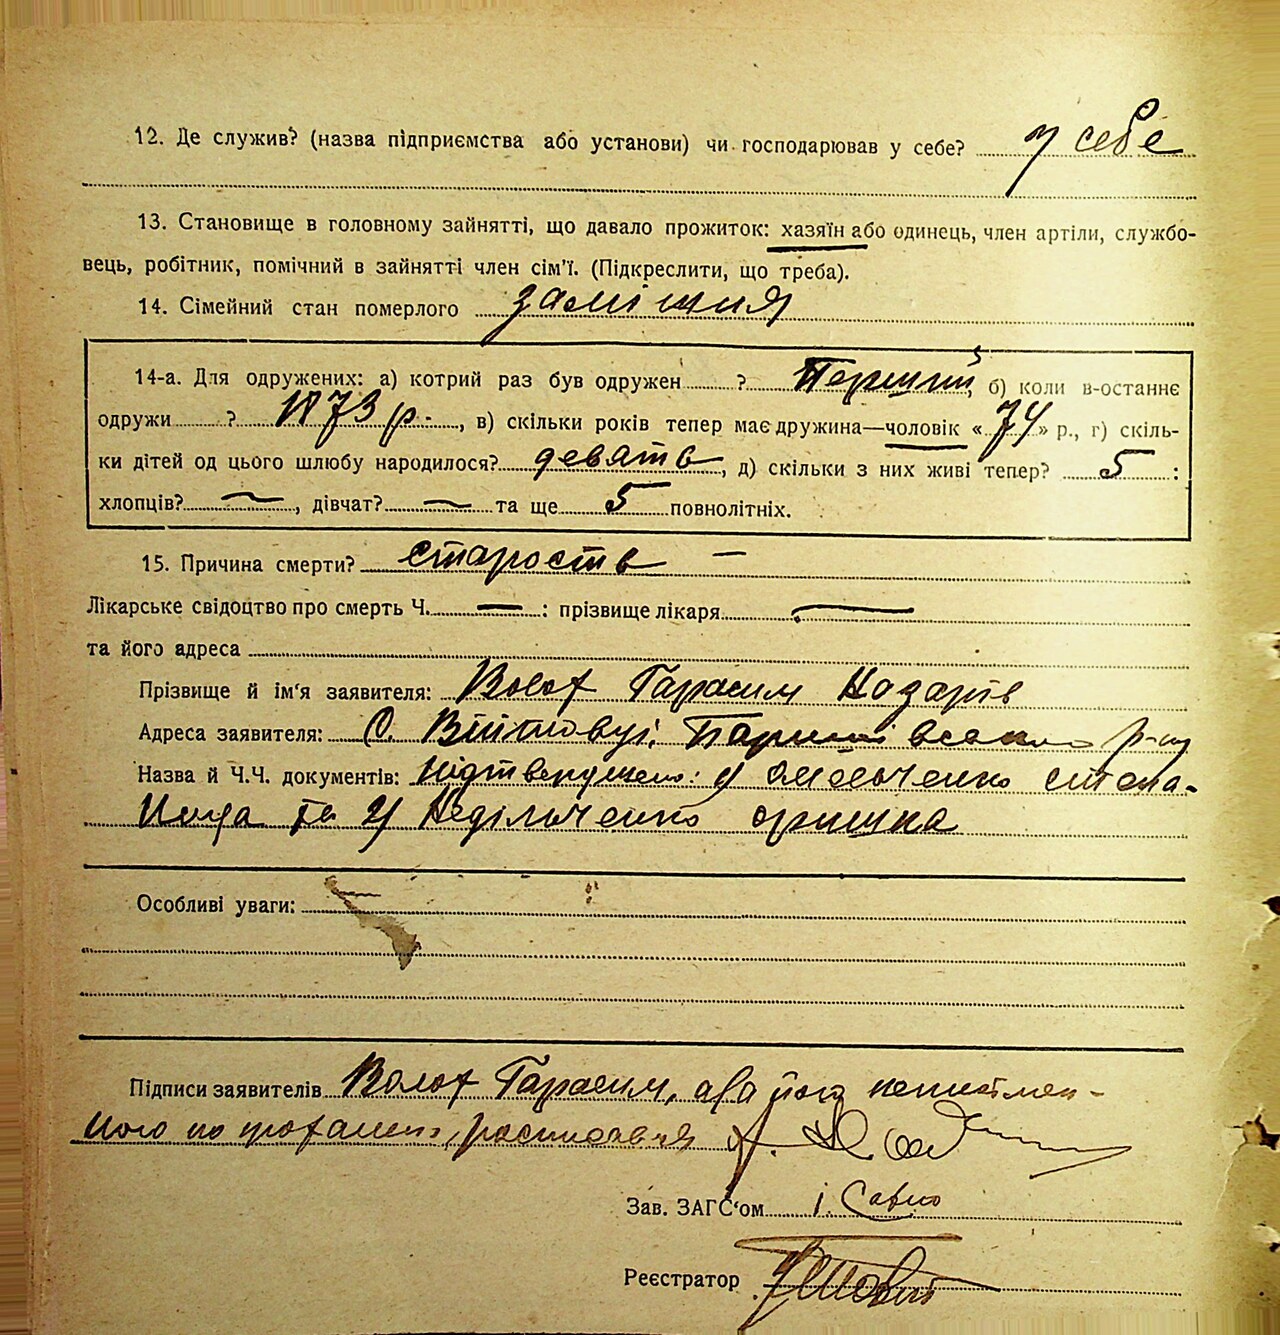 12. Де служив? (назва підприємства або установи) чи господарював у себе? у себе
13. Становище в головному зайнятті, що давало прожиток: хазяїн або одинець, член артіли, службо-
вець, робітник, помічний в зайнятті член сім'ї. (Підкреслити, що треба).
14. Сімейний стан померлого заміжня
14-а. Для одружених: а) котрий раз був одружен ? Перший, б) коли в-останнє
одружи ? 1873 р., в) скільки років тепер має дружина—чоловік «74» р., г) скіль-
ки дітей од цього шлюбу народилося? девять, д) скільки з них живі тепер? 5 :
хлопців? —, дівчат? — та ще 5 повнолітніх.
15. Причина смерти? старость —
Лікарське свідоцтво про смерть Ч. — : прізвище лікаря —
та його адреса
Прізвище й ім'я заявителя: Волох Гарасим Назарів
Адреса заявителя: С. Війтовці, р-ну
Назва й Ч.Ч. документів: Підтверджено: Омельченко
та Недільченко
Особливі уваги:
Підписи заявителів Волох Гарасим, а за його неписмен-
ного по проханню, росписався
Зав. ЗАГС'ом І. Савко
Реєстратор